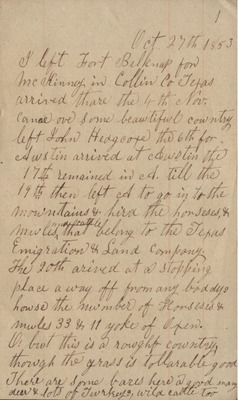 1
Oct 27th 1853
I left Fort Belknap for
McKinney in Collin Co Texas
arrived thare the 4th Nov.
came ove some beautiful country
left John Hedgcoxe the 6th for
Austin arrived at Austin the
17th remained in A. till the
19th then left A to go into the
mountains & hird the horseses, &
mules, that belong to the Texas
Emigration & Land company.
The 20th arived at a stopping
place a way off from any boddys
howse the number of Horseses &
mules 33 & 11 yoke of Oxen.
O, but this is a rowgh country
thowgh the grass is tollarable good
There are some bares here a good many
dear & lots of Turkeys, wild cattle too